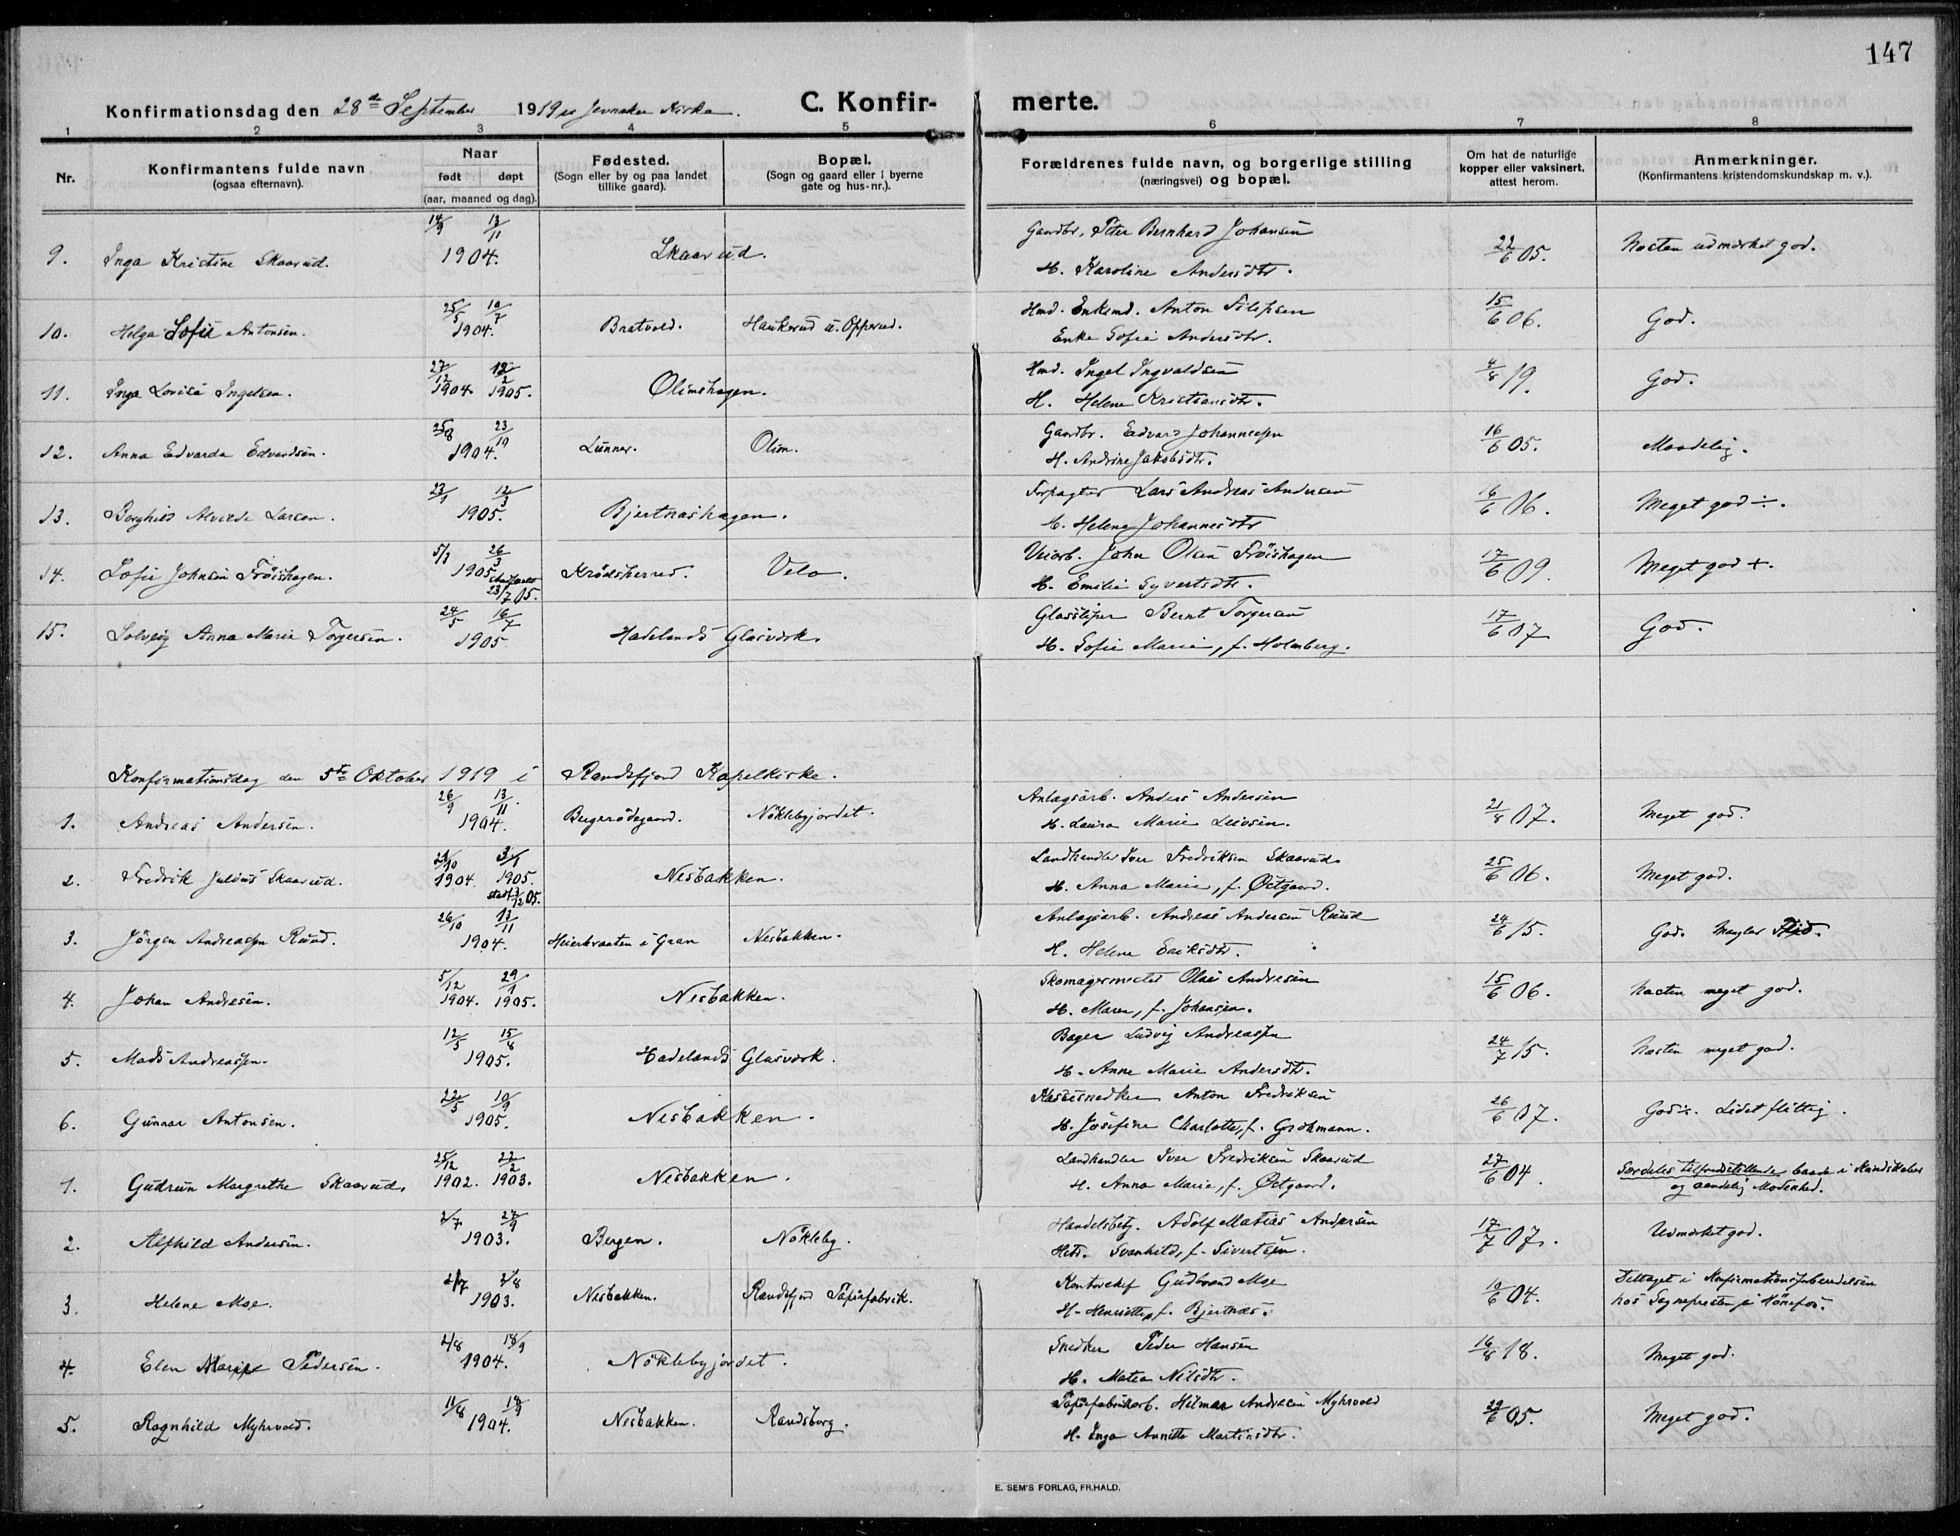 147
Konfirmationsdag den 28de September 1919 i Jevnaker Kirke. C. Konfirmerte.
1 2 3 4 5 6 7 8
Nr. Konfirmantens fulde navn (ogsaa efternavn). Naar født døpt (aar, maaned og dag). Fødested. (Sogn eller by og paa landet tillike gaard). Bopæl. (Sogn og gaard eller i byerne gate og hus-nr.). Forældrenes fulde navn, og borgerlige stilling (næringsvei) og bopæl. Om hat de naturlige kopper eller vaksinert, attest herom. Anmerkninger. (Konfirmantens kristendomskundskap m. v.).
9. Inga Kristine Skaarud. 14/9 13/11 1904. Skaarud. Gaardbr. Peter Bernhard Johansen 22/6 05. Næsten udmærket god.
H. Karoline Andersdtr.
10. Helga Sofie Antonsen. 25/5 10/7 1904. Bratvold. Haukerud u. Opperud. Hmd. Enkemd. Anton Filipsen 15/6 06. God.
Enke Sofie Andersdtr.
11. Inga Lovise Ingelsen. 27/12 1904. 12/2 1905. Olimshagen. Hmd. Ingel Ingvaldsen 4/8 19. God.
H. Helene Kristiansdtr.
12. Anna Edvarda Edvardsen. 25/8 23/10 1904. Lunner. Olim. Gaardbr. Edvard Johannessen 16/6 05. Maadelig.
H. Andrine Jakobsdtr.
13. Borghild Alvilde Larsen. 23/1 12/3 1905. Bjertnæshagen. Forpagter Lars Andreas Andersen 16/6 06. Meget god ÷.
H. Helene Johannesdtr
14. Sofie Johnsen Frøishagen. 5/3 26/3 1905. stadfæstet 23/7 05. Krødsherred. Velo. Veiarb. John Olsen Frøishagen 17/6 09. Meget god +.
H. Emilie Syvertsdtr.
15. Solveig Anna Marie Torgersen. 24/5 16/7 1905. Hadelands Glasværk. Glassliper Bernt Torgersen 17/6 07 God.
H. Sofie Marie, f. Holmberg.
Konfirmationsdag den 5te Oktober 1919 i Randsfjord Kapelkirke.
1. Andreas Andersen. 26/9 13/11 1904. Bergerødegaard. Nøklebyjordet. Anlægsarb. Anders Andersen 21/8 07. Meget god.
H. Laura Marie Leivsen.
2. Fredrik Julius Skaarud. 1904. 1905. Nesbakken. Landhandler Iver Fredriksen Skaarud 25/6 06. Meget god.
H. Anna Marie, f. Østgaard.
3. Jørgen Andreassen Ruud. 26/10 13/11 1904. Heierbraaten i Gran Nesbakken. Anlægsarb. Andreas Andersen Ruud 24/6 15. God. Mangler Flid.
H. Helene Eriksdtr.
4. Johan Andresen. 5/12 1904. 29/1 1905. Nesbakken. Skomagermester Olai Andresen 15/6 06. Næsten meget god.
H. Maren, f. Johansen.
5. Mads Andreassen. 12/5 15/8 1905. Hadelands Glasværk. Bager Ludvig Andreassen 24/7 15. Næsten meget god.
H. Anne Marie Andersdtr.
6. Gunnar Antonsen. 22/5 10/9 1905. Nesbakken. Kassesnedker Anton Fredriksen 26/6 07. God ÷. Lidet flittig.
H. Josefine Charlotte, f. Grohmann.
1. Gudrun Margrethe Skaarud. 25/12 1902. 22/2 1903. Nesbakken. Landhandler Iver Fredriksen Skaarud 27/6 04. Særdeles tilfredsstillende baade i Kundskaber
H. Anna Marie, f. Østgaard. og aandelig Modenhed.
2. Alfhild Andersen. 2/7 27/9 1903. Bergen. Nøkleby. Handelsbetj. Adolf Matias Andersen 17/7 07. Udmærket god.
Hstr. Svanhild, f. Sivertsen.
3. Helene Moe. 2/7 2/8 1903. Nesbakken. Randsfjord Papirfabrik. Kontorchef Gudbrand Moe 10/6 04. Deltaget i Konfirmationsforberedelsen
H. Henriette, f. Bjertnæs. hos Sognepresten i Hønefos.
4. Elen Marie Pedersen. 4/8 18/9 1904. Nøklebyjordet. Snedker Peder Hansen 16/8 18. Meget god.
H. Matea Nilsdtr.
5. Ragnhild Myhrvold. 11/8 18/9 1904. Nesbakken. Randsborg. Papirfabrikarb. Hilmar Andresen Myhrvold 29/6 05. Meget god.
H. Inga Annette Martinsdtr.
E. SEM'S FORLAG, FR.HALD.